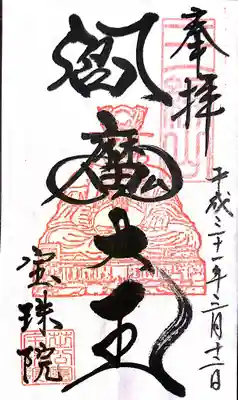 奉拝
平成三十一年三月十二日
閻魔大王
宝珠院